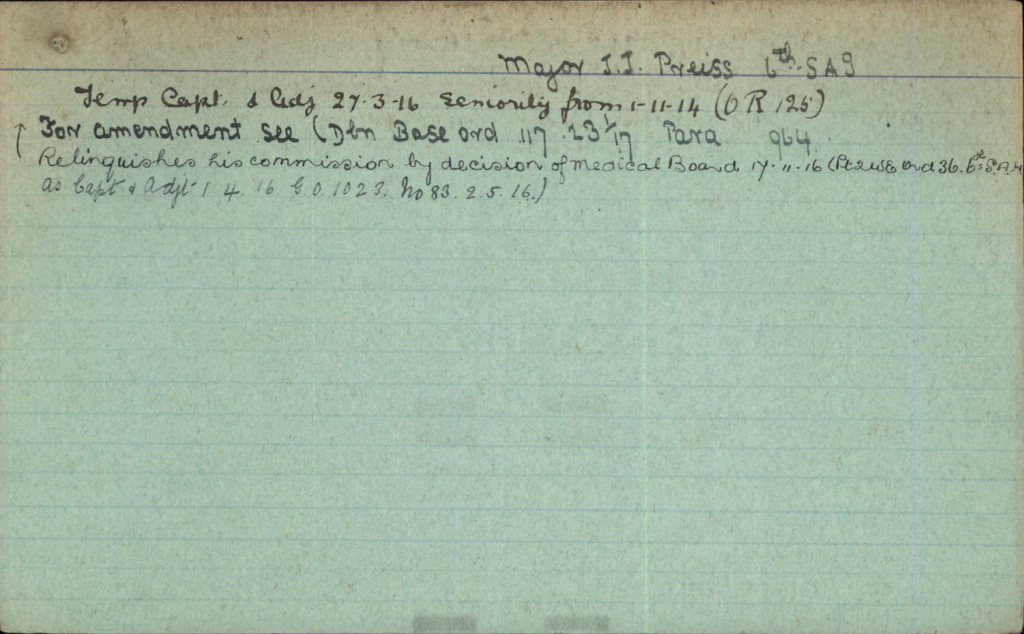 Major J.J. Preiss 6th S A I
Temp Capt. & Adj 27-3-16 Seniority from 1-11-14 (O R 125)
For amendment see (Dbn Base ord 117 23/1/17 Para 964
Relinquishes his commission by decision of Medical Board 17.11.16 (Pt 2 ord 36. 6th S.A.I
as Capt & Adjt 1 4. 16. G.O. 1023. No 83. 2. 5. 16.)